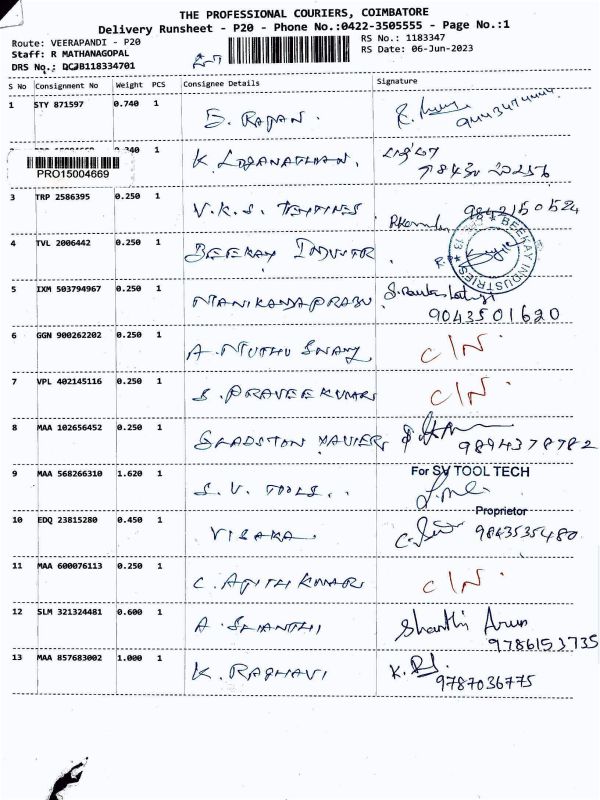 THE PROFESSIONAL COURIERS, COIMBATORE
Delivery Runsheet - P20 - Phone No.:0422-3505555 - Page No.:1
Route: VEERAPANDI - P20
RS No.: 1183347
Staff: R MATHANAGOPAL
RS Date: 06-Jun-2023
DRS No.: DCJB118334701
S No Consignment No Weight PCS Consignee Details Signature
1 STY 871597 0.740 1 S. RAJAN. 9443474444
1 K. LOGANATHAN.
PRO15004669
3 TRP 2586395 0.250 1 V.K.S. TEXTINES 9842150524
4 TVL 2006442 0.250 1 BEEKAY INDUSTR.
BEEKAY INDUSTRIES
5 IXM 503794967 0.250 1 MANIKANDAPRABU
9043501620
6 GGN 900262202 0.250 1 A. MUTHU SWAMY C/N.
7 VPL 402145116 0.250 1 S. PRAVEEKUMAR C/N.
8 MAA 102656452 0.250 1 GLADSTON XAVIER, 9894378782
9 MAA 568266310 1.620 1 S.V. TOOLS.. For SV TOOL TECH
Proprietor
10 EDQ 23815280 0.450 1 VISAKA. 9843535480
11 MAA 600076113 0.250 1 C. AJITH KUMAR C/N.
12 SLM 321324481 0.600 1 A. SHANTHI Shanthi Arun
9786153735
13 MAA 857683002 1.000 1 K. RAGHAVI K. R
9787036775